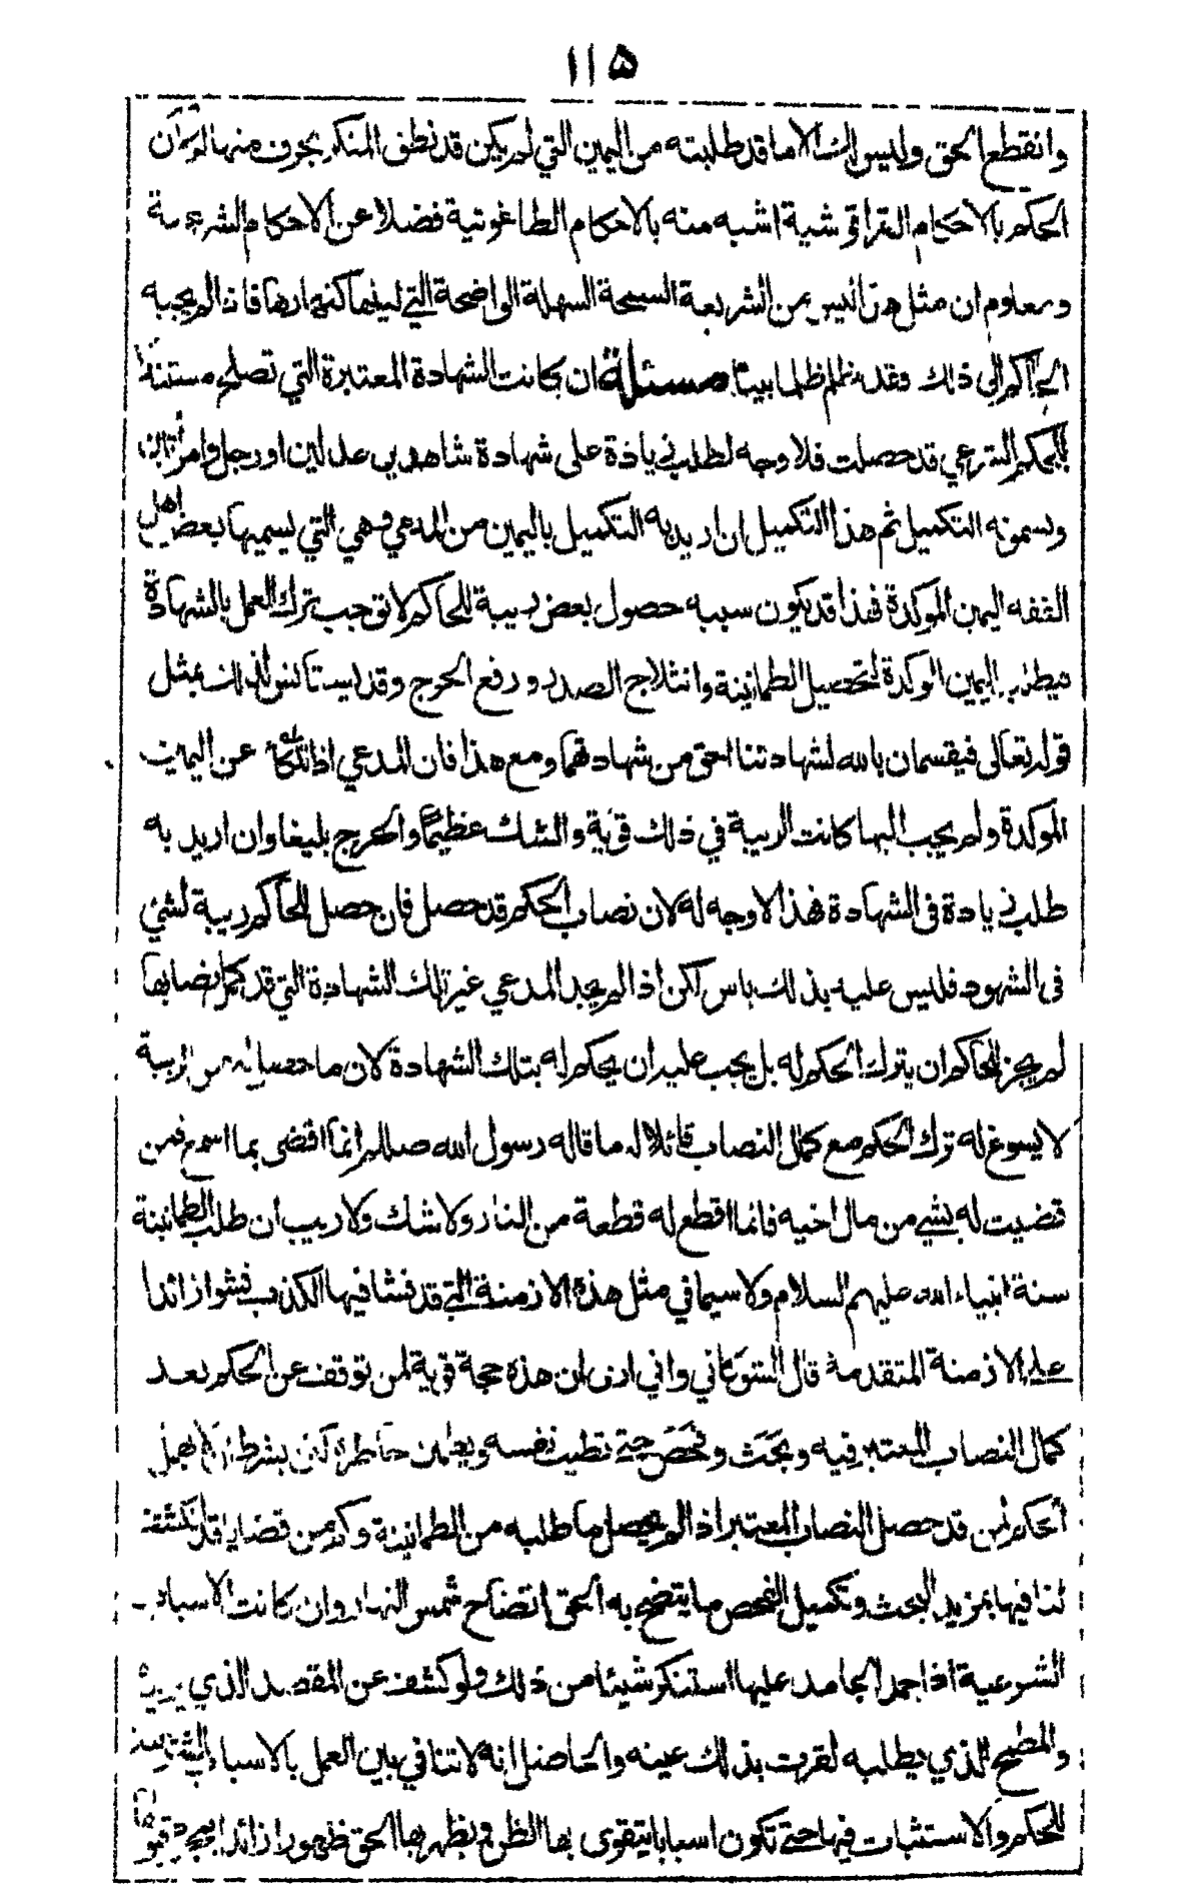 ١١٥
وانقطع الحق وليس لك الا ما قد طلبته من اليمين التي لم يكن قد نطق المنكر بحرف منها لكان
الحكم بالاحكام القراقوشية اشبه منه بالاحكام الطاغوتية فضلا عن الاحكام الشرعية
ومعلوم ان مثل هذا ليس من الشريعة السمحة السهلة الواضحة التي ليلها كنهارها فاذا لم يجبه
الحاكم الى ذلك فقد ظلم ظلما بينا مسئلة ان كانت الشهادة المعتبرة التي تصلح مستندا
للحكم الشرعي قد حصلت فلا وجه لطلب زيادة على شهادة شاهدين عدلين او رجل وامرأتين
ويسمونه التكميل ثم هذا التكميل ان اريد به التكميل باليمين من المدعي وهي التي يسميها بعض اهل
الفقه اليمين الموكدة فهذا قد يكون سببه حصول بعض ريبة للحاكم لا توجب ترك العمل بالشهادة
فيطلب اليمين الموكدة لتحصيل الطمانينة وانثلاج الصدر ورفع الحرج وقد يستأنس لذلك بمثل
قوله تعالى فيقسمان بالله لشهادتنا احق من شهادتهما ومع هذا فان المدعي اذا تلكأ عن اليمين
الموكدة ولم يجب اليها كانت الريبة في ذلك قوية والشك عظيما والحرج بليغا وان اريد به
طلب زيادة في الشهادة فهذا لا وجه له لان نصاب الحكم قد حصل فان حصل للحاكم ريبة لشئ
في الشهود فليس عليه بذلك باس لكن اذا لم يجد المدعي غير تلك الشهادة التي قد كمل نصابها
لم يجز للحاكم ان يترك الحكم له بل يجب عليه ان يحكم له بتلك الشهادة لان ما حصل له من الريبة
لا يسوغ له ترك الحكم مع كمال النصاب قائلا له ما قاله رسول الله صللم انما اقضى بما اسمع فمن
قضيت له بشئ من مال اخيه فانما اقطع له قطعة من النار ولا شك ولا ريب ان طلب الطمانينة
سنة انبياء الله عليهم السلام ولا سيما في مثل هذه الازمنة التي قد فشا فيها الكذب فشوا زائدا
على الازمنة المتقدمة قال الشوكاني واني ارى ان هذه حجة قوية لمن توقف عن الحكم بعد
كمال النصاب المعتبر فيه وبحث وفحص حتى تطيب نفسه ويطمئن خاطره لكن بشرط ان لا يهمل
الحكم لمن قد حصل النصاب المعتبر اذا لم يحصل ما طلبه من الطمانينة وكم من قضايا قد انكشف
لنا فيها بمزيد البحث وتكميل الفحص ما يتضح به الحق اتضاح شمس النهار وان كانت الاسباب
الشرعية اذا جمد الجامد عليها استنكر شيئا من ذلك ولو كشف عن المقصد الذي يريده
والمطمح الذي يطلبه لقرت بذلك عينه والحاصل انه لا تنافي بين العمل بالاسباب المثبتة
للحكم والاستثبات فيها حتى تكون اسبابا يتقوى بها الظن ويظهر بها الحق ظهورا زائدا